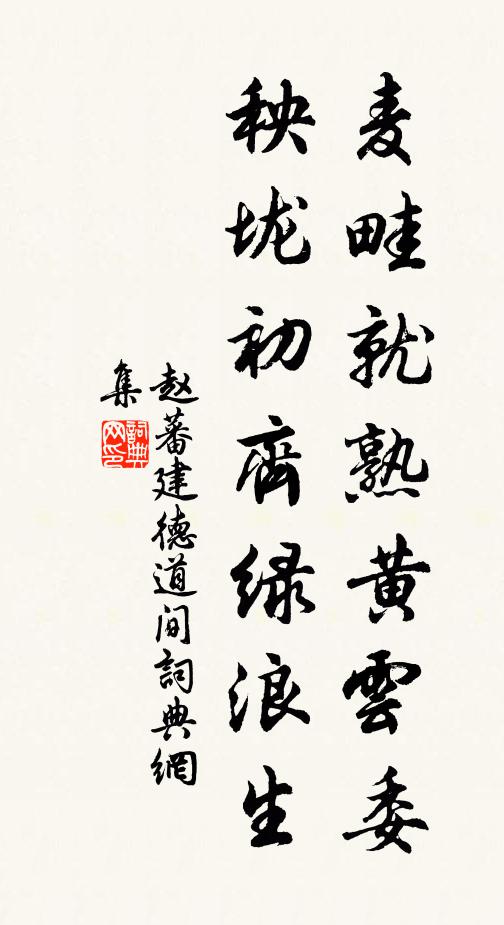 麦畦就熟黄雲委
秧垅初齊緑浪生
赵蕃建德道间詞典網
集
詞典
网印